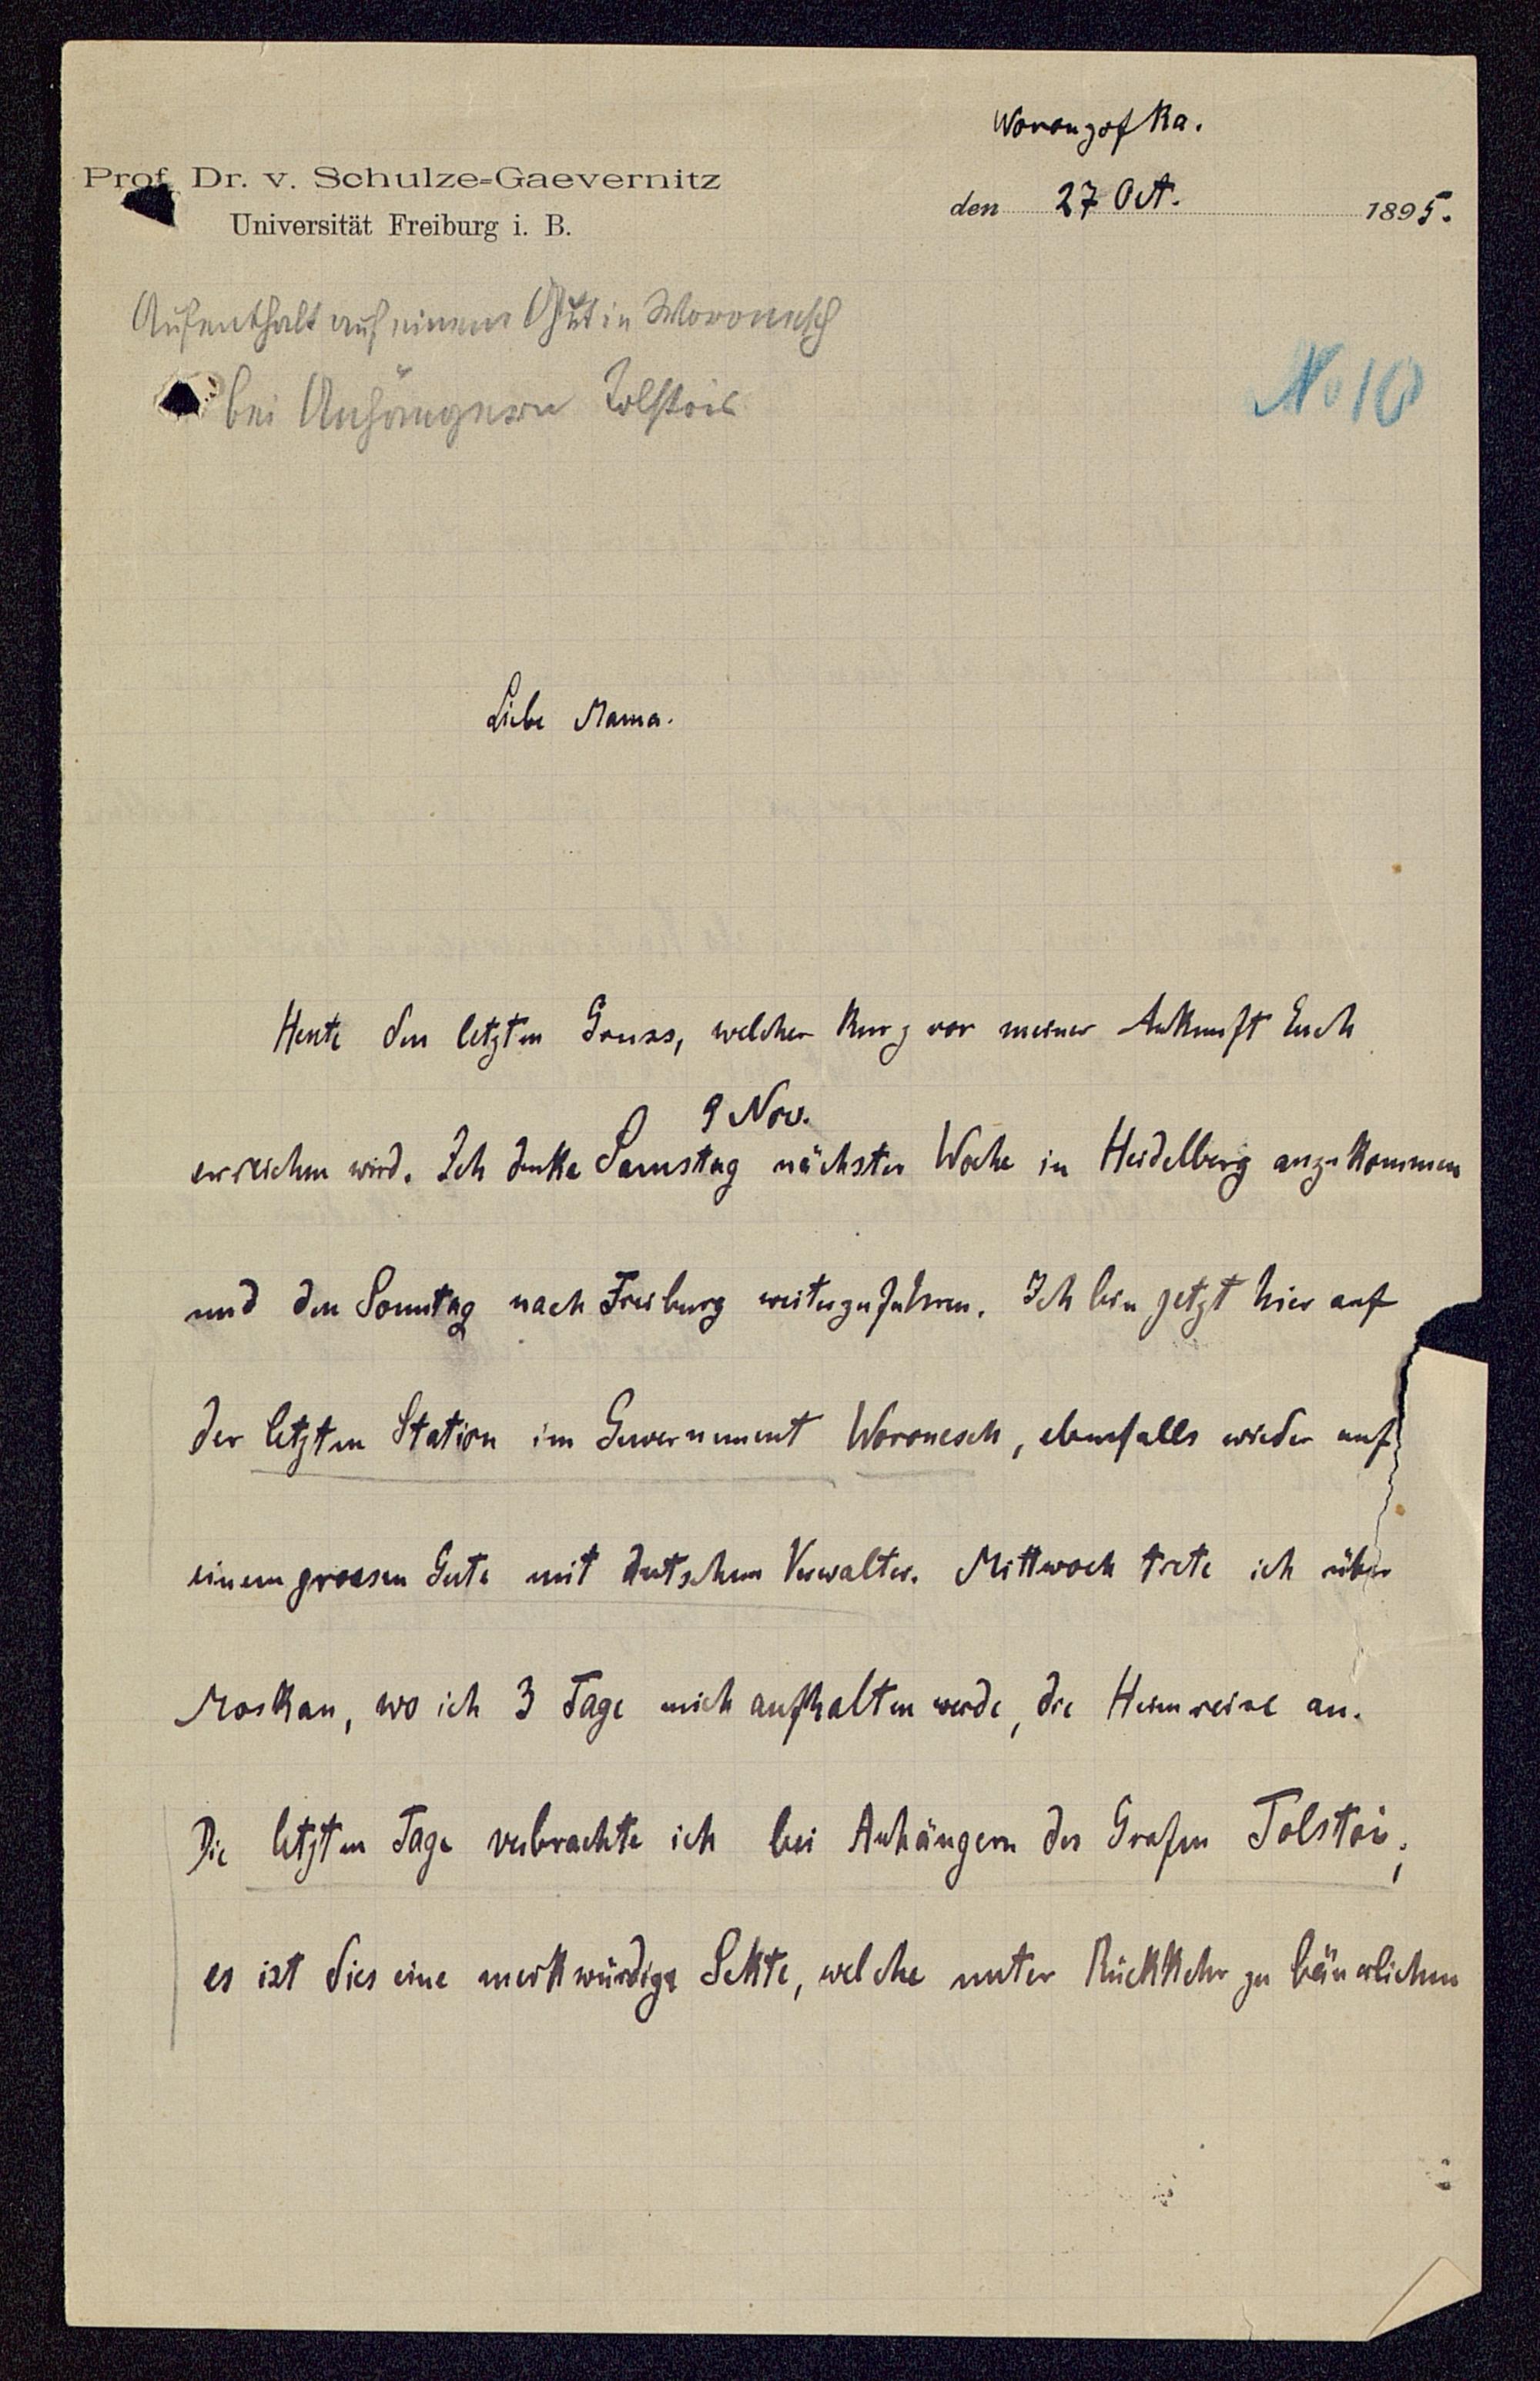 Woronzofka.
Prof. Dr. v. Schulze-Gaevernitz
Universität Freiburg i. B.
den 27 Oct. 1895.
Aufenthalt auf einem Gut in Woronesch
bei Anhängern Tolstois
No 10
Liebe Mama.
Heute den letzten Gruss, welcher kurz vor meiner Ankunft Euch
9 Nov.
erreichen wird. Ich denke Samstag nächster Woche in Heidelberg anzukommen
und den Sonntag nach Freiburg weiterzufahren. Ich bin jetzt hier auf
der letzten Station im Gouvernement Woronesch, ebenfalls wieder auf
einem grossen Gute mit deutschem Verwalter. Mittwoch trete ich über
Moskau, wo ich 3 Tage mich aufhalten werde, die Heimreise an.
Die letzten Tage verbrachte ich bei Anhängern des Grafen Tolstoi;
es ist dies eine merkwürdige Sekte, welche unter Rückkehr zu bäuerlichem